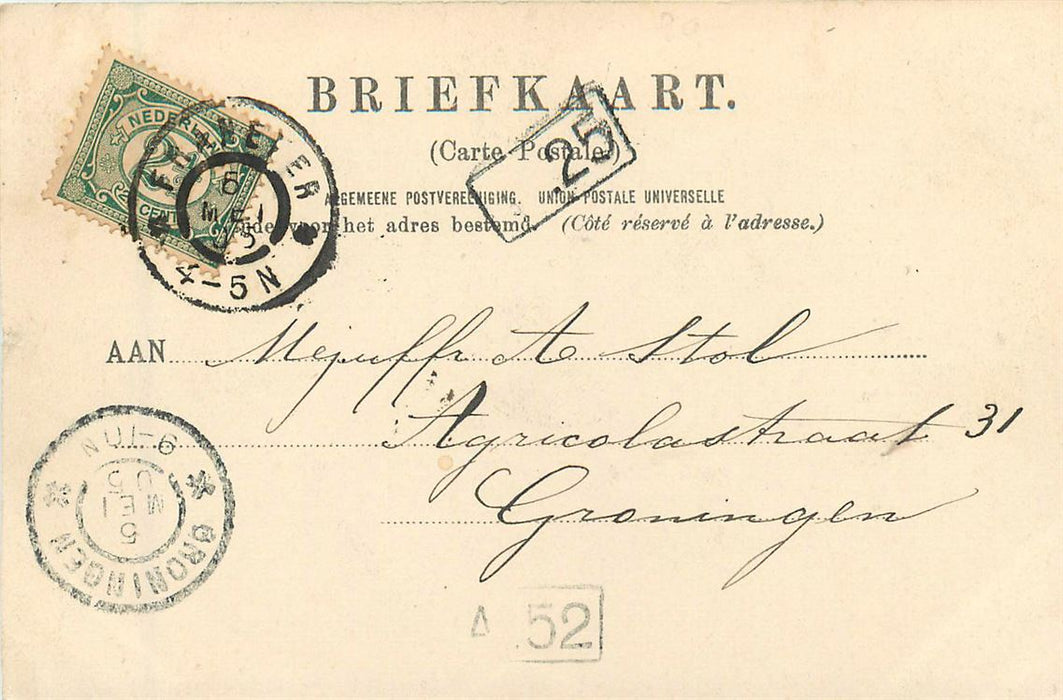 BRIEFKAART.
(Carte Postale.)
ALGEMEENE POSTVEREENIGING. UNION POSTALE UNIVERSELLE
voor het adres bestemd. (Côté réservé à l'adresse.)
NEDERL
CENT
FRANEKER
5
MEI
05
4-5N
.25
AAN Mejuffr A Stol
Agricolastraat 31
Groningen
GRONINGEN
5
MEI
05
9-10N
A 52